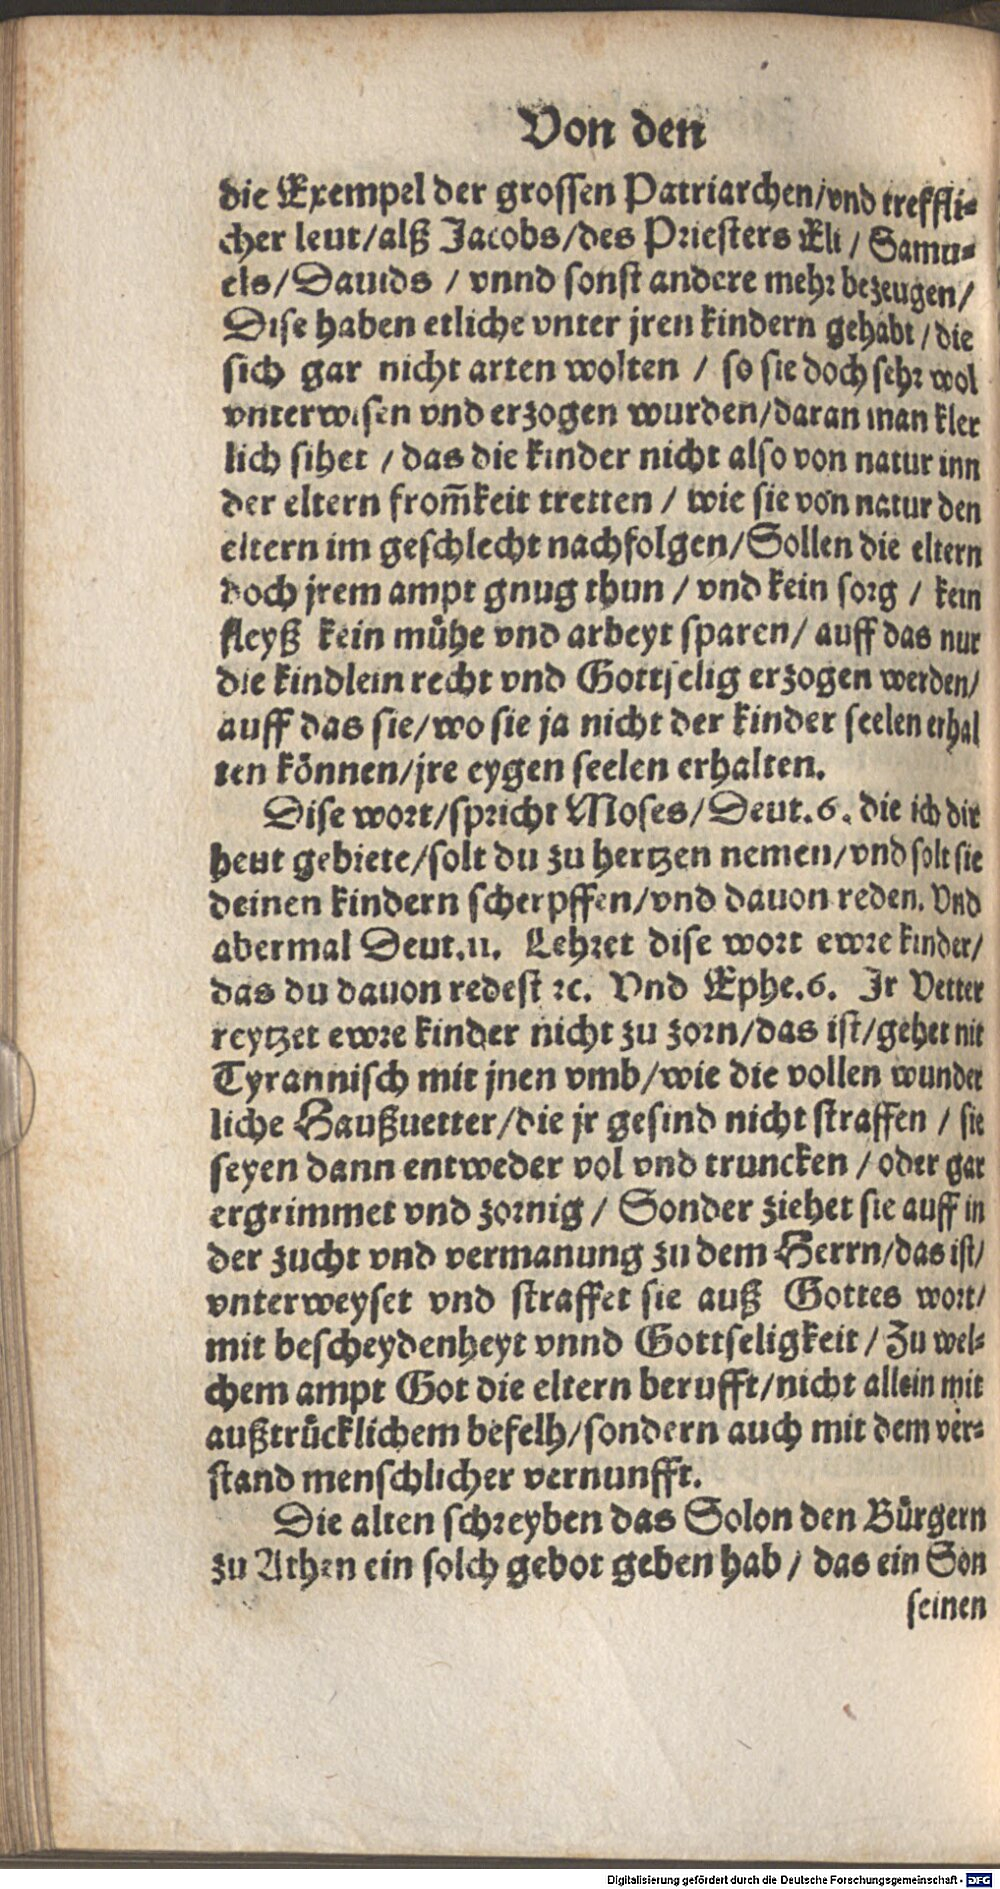 Von den
die Exempel der grossen Patriarchen/vnd treffli-
cher leut/alß Jacobs/des Priesters Eli/ Samu-
els/Dauids / vnnd sonst andere mehr bezeugen/
Dise haben etliche vnter jren kindern gehabt/die
sich gar nicht arten wolten / so sie doch sehr wol
vnterwisen vnd erzogen wurden/daran man kler
lich sihet /das die kinder nicht also von natur inn
der eltern from̃keit tretten / wie sie von natur den
eltern im geschlecht nachfolgen/Sollen die eltern
doch jrem ampt gnug thun / vnd kein sorg / kein
fleyß kein mühe vnd arbeyt sparen/ auff das nur
die kindlein recht vnd Gottselig erzogen werden/
auff das sie/wo sie ja nicht der kinder seelen erhal
ten können/jre eygen seelen erhalten.
Dise wort/spricht Moses/Deut.6. die ich dir
heut gebiete/solt du zu hertzen nemen/vnd solt sie
deinen kindern scherpffen/vnd dauon reden. Vnd
abermal Deut.11. Lehret dise wort ewre kinder/
das du dauon redest ꝛc. Vnd Ephe.6. Jr Vetter
reytzet ewre kinder nicht zu zorn/das ist/gehet nit
Tyrannisch mit jnen vmb/wie die vollen wunder
liche Haußuetter/die jr gesind nicht straffen / sie
seyen dann entweder vol vnd truncken /oder gar
ergrimmet vnd zornig/ Sonder ziehet sie auff in
der zucht vnd vermanung zu dem Herrn/das ist/
vnterweyset vnd straffet sie auß Gottes wort/
mit bescheydenheyt vnnd Gottseligkeit/Zu wel-
chem ampt Got die eltern berufft/nicht allein mit
außtrücklichem befelh/sondern auch mit dem ver-
stand menschlicher vernunfft.
Die alten schreyben das Solon den Bürgern
zu Athen ein solch gebot geben hab / das ein Son
seinen
Digitalisierung gefördert durch die Deutsche Forschungsgemeinschaft - DFG